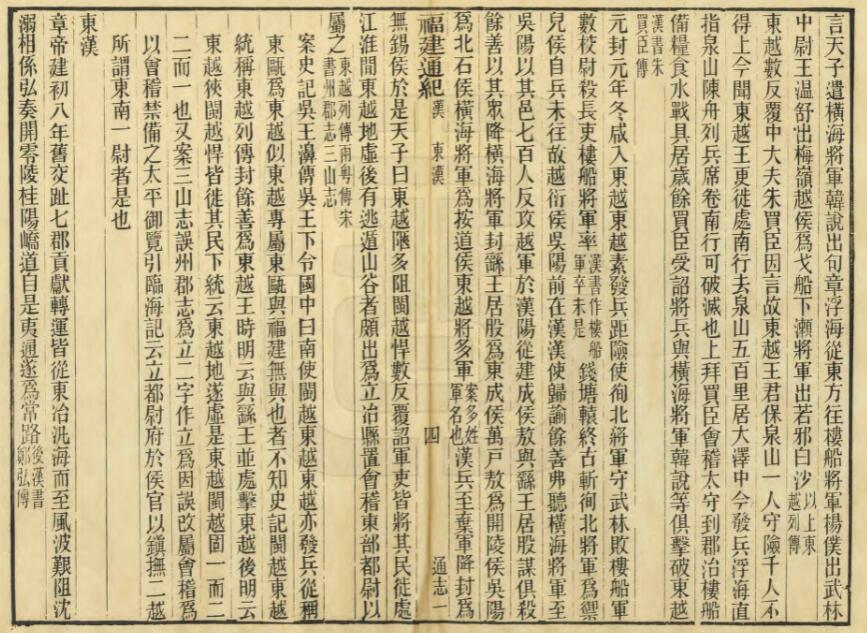 言天子遣橫海將軍韓說出句章浮海從東方往樓船將軍楊僕出武林
中尉王温舒出梅嶺越侯爲戈船下瀨將軍出若邪白沙以上東越列傳
東越數反覆中大夫朱買臣因言故東越王君保泉山一人守險千人不
得上今聞東越王更徙處南行去泉山五百里居大澤中今發兵浮海直
指泉山陳舟列兵席卷南行可破滅也上拜買臣會稽太守到郡治樓船
備糧食水戰具居歲餘買臣受詔將兵與橫海將軍韓說等俱擊破東越
漢書朱買臣傳
元封元年冬咸入東越東越素發兵距險使徇北將軍守武林敗樓船軍
數校尉殺長吏樓船將軍率漢書作樓船軍卒未是錢塘轅終古斬徇北將軍爲禦
兒侯自兵未往故越衍侯吳陽前在漢漢使歸諭餘善弗聽橫海將軍至
吳陽以其邑七百人反攻越軍於漢陽從建成侯敖與繇王居股謀俱殺
餘善以其眾降橫海將軍封繇王居股爲東成侯萬戶敖爲開陵侯吳陽
爲北石侯橫海將軍爲按道侯東越將多軍案多姓軍名也漢兵至棄軍降封爲
福建通紀 漢 東漢 四 通志一
無錫侯於是天子曰東越陿多阻閩越悍數反覆詔軍吏皆將其民徙處
江淮間東越地虛後有逃遁山谷者頗出爲立冶縣置會稽東部都尉以
屬之東越列傳兩粵傳宋書州郡志三山志
案史記吳王濞傳吳王下令國中曰南使閩越東越東越亦發兵從稱
東甌爲東越似東越專屬東甌與福建無與也者不知史記閩越東越
統稱東越列傳封餘善爲東越王時明云與繇王並處擊東越後明云
東越狹閩越悍皆徙其民下統云東越地遂虛是東越閩越固一而二
二而一也又案三山志誤州郡志爲立二字作立爲因誤改屬會稽爲
以會稽禁備之太平御覽引臨海記云立都尉府於侯官以鎮撫二越
所謂東南一尉者是也
東漢
章帝建初八年舊交趾七郡貢獻轉運皆從東冶汎海而至風波艱阻沈
溺相係弘奏開零陵桂陽嶠道自是夷通遂爲常路後漢書鄭弘傳